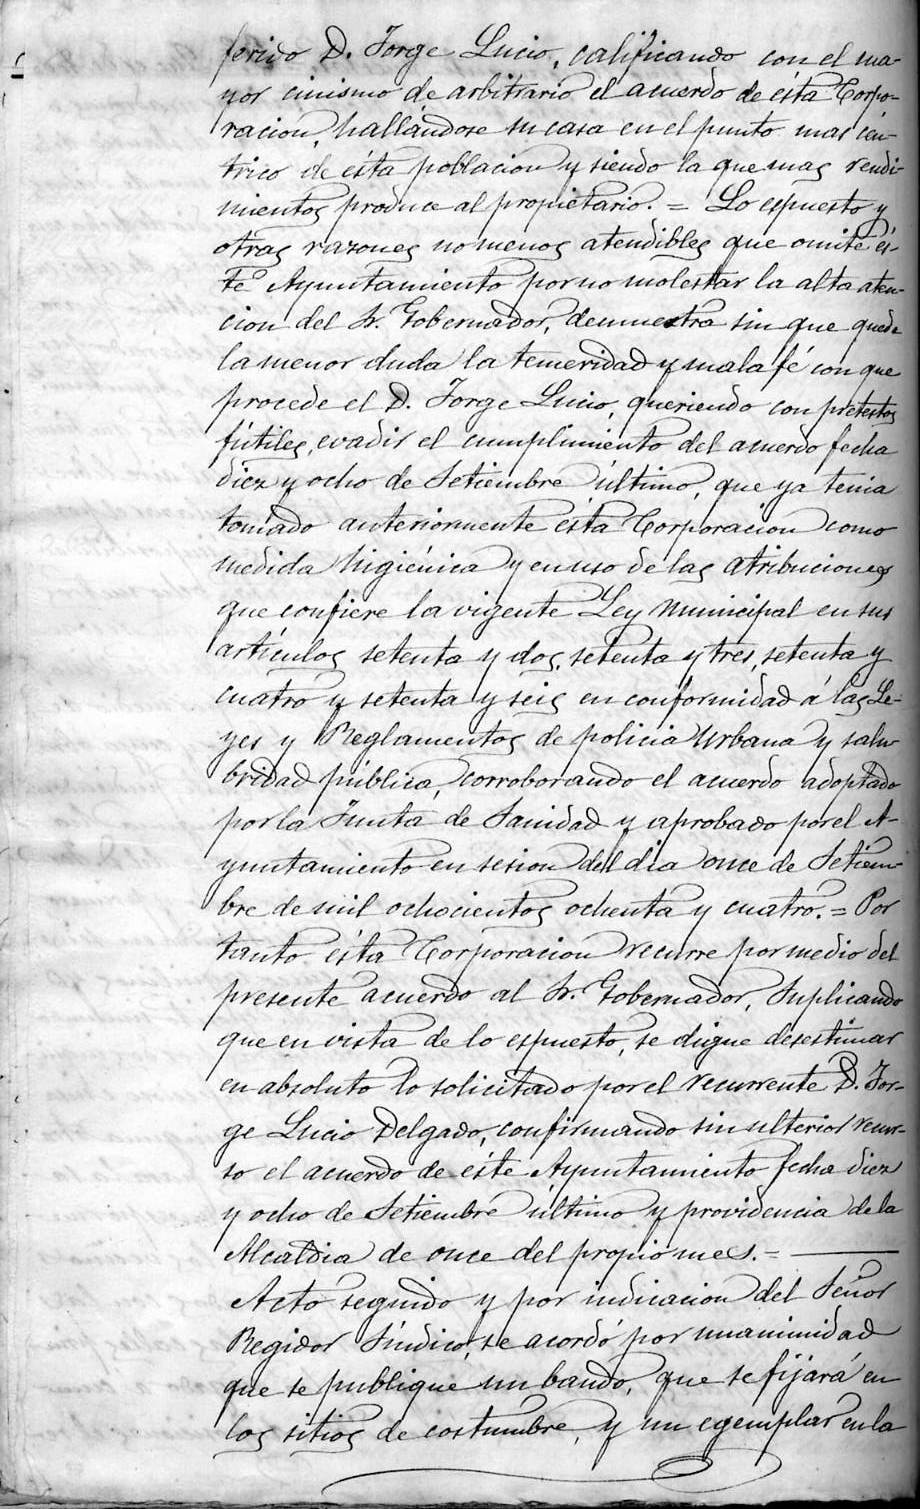 ferido D. Jorge Lucio, calificando con el ma-
yor cinismo de arbitrario el acuerdo de ésta Corpo-
racion, hallándose su casa en el punto mas cén-
trico de ésta poblacion y siendo la que mas rendi-
mientos produce al propietario. = Lo espuesto y
otras razones no menos atendibles que omite és-
te Ayuntamiento por no molestar la alta aten-
cion del Sr. Gobernador, demuestra sin que quede
la menor duda la temeridad y mala fé con que
procede el D. Jorge Lucio, queriendo con pretestos
fútiles, evadir el cumplimiento del acuerdo fecha
diez y ocho de Setiembre último, que ya tenia
tomado anteriormente ésta Corporacion como
medida higiénica y en uso de las atribuciones
que confiere la vigente Ley Municipal en sus
artículos setenta y dos, setenta y tres, setenta y
cuatro y setenta y seis en conformidad á las Le-
yes y Reglamentos de policia Urbana y salu-
bridad pública, corroborando el acuerdo adoptado
por la Junta de Sanidad y aprobado por el A-
yuntamiento en sesion del dia once de Setiem-
bre de mil ochocientos ochenta y cuatro. = Por
tanto ésta Corporacion recurre por medio del
presente acuerdo al Sr. Gobernador, Suplicando
que en vista de lo espuesto, se digne desestimar
en absoluto lo solicitado por el recurrente D. Jor-
ge Lucio Delgado, confirmando sin ulterior recur-
so el acuerdo de éste Ayuntamiento fecha diez
y ocho de Setiembre último y providencia de la
Alcaldia de once del propio mes. =
Acto seguido y por indicacion del Señor
Regidor Síndico, se acordó por unanimidad
que se publique un bando, que se fijará en
los sitios de costumbre, y un egemplar en la